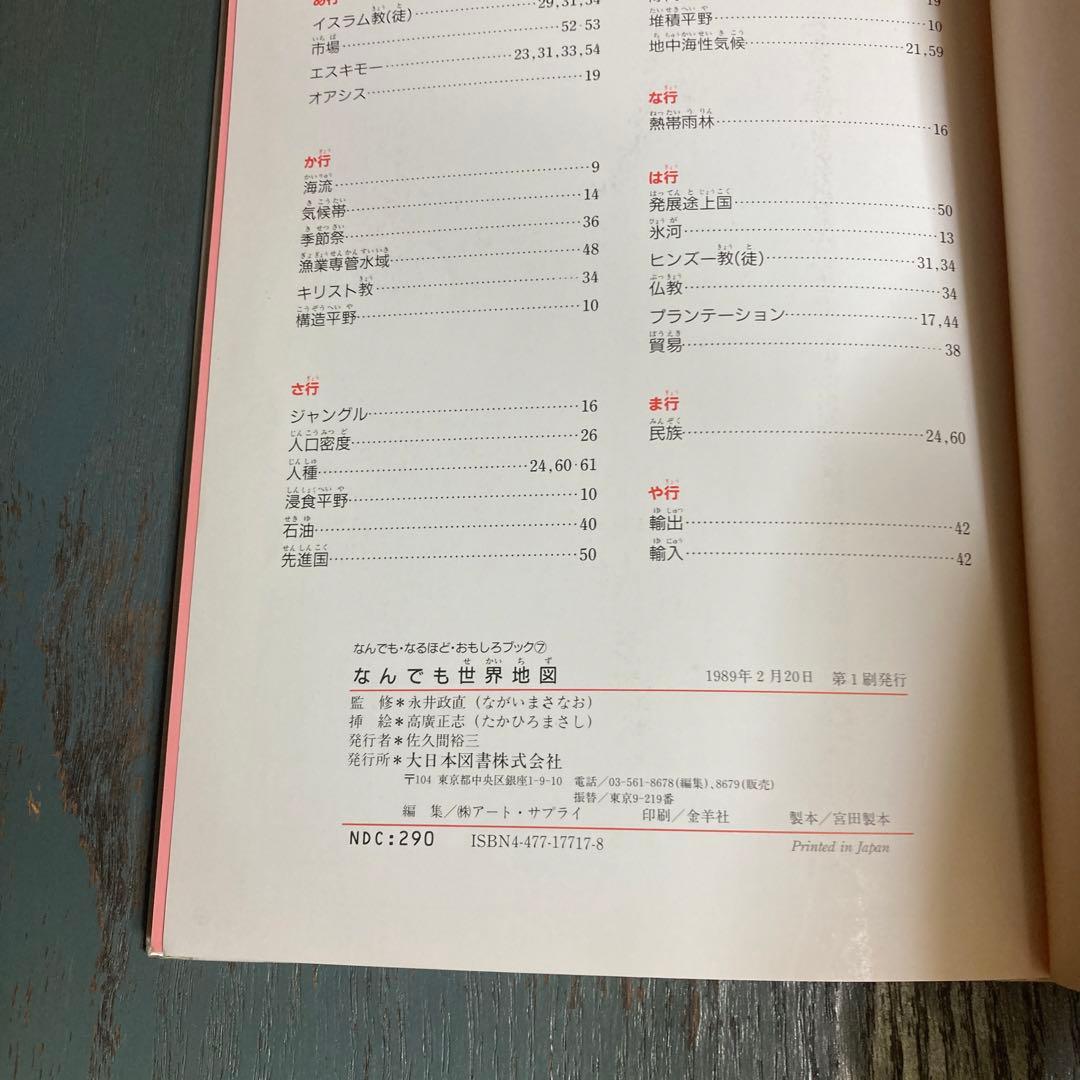 あ行
イスラム教(徒) 29,31,34
市場 52·53
エスキモー 23,31,33,54
オアシス 19
か行
海流 9
気候帯 14
季節祭 36
漁業専管水域 48
キリスト教 34
構造平野 10
さ行
ジャングル 16
人口密度 26
人種 24,60·61
浸食平野 10
石油 40
先進国 50
19
堆積平野 10
地中海性気候 21,59
な行
熱帯雨林 16
は行
発展途上国 50
氷河 13
ヒンズー教(徒) 31,34
仏教 34
プランテーション 17,44
貿易 38
ま行
民族 24,60
や行
輸出 42
輸入 42
なんでも・なるほど・おもしろブック⑦
なんでも世界地図 1989年2月20日 第1刷発行
監 修*永井政直(ながいまさなお)
挿 絵*高廣正志(たかひろまさし)
発行者*佐久間裕三
発行所*大日本図書株式会社
〒104 東京都中央区銀座1-9-10 電話/03-561-8678(編集)、8679(販売)
振替/東京9-219番
編 集/㈱アート・サプライ 印刷/金羊社 製本/宮田製本
NDC:290 ISBN4-477-17717-8 Printed in Japan